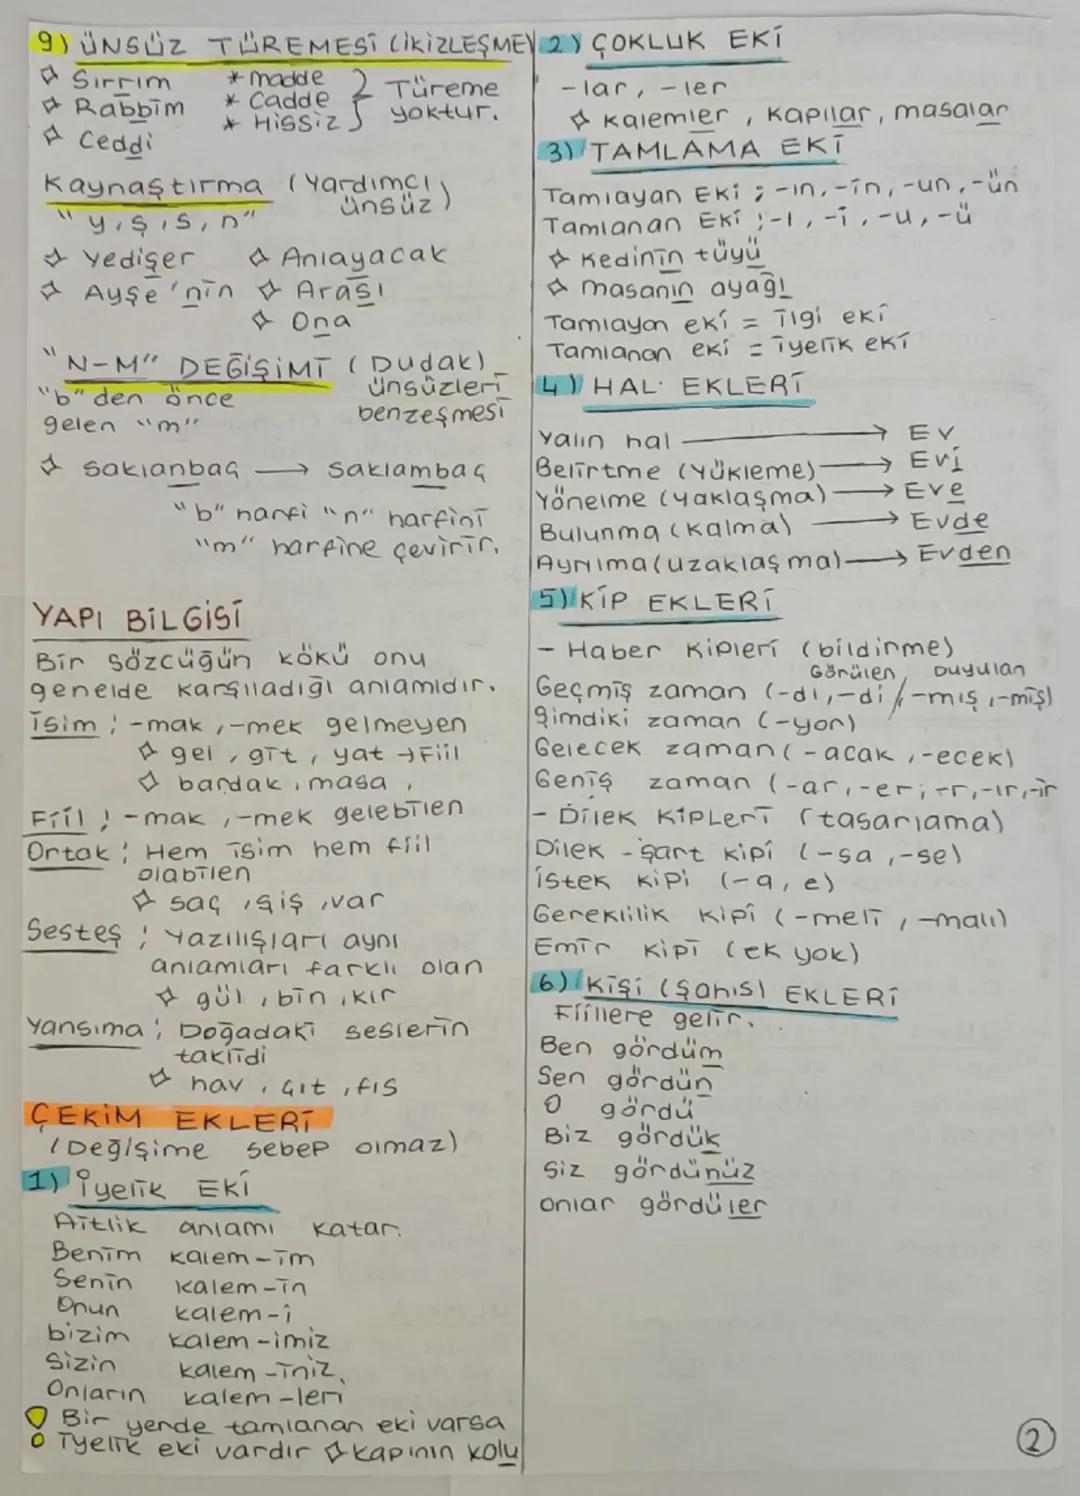 9) ÜNSÜZ TÜREMESİ (İKİZLEŞME)
Sırrım
Rabbim
Ceddi
* madde
* Cadde
* Hissiz
Türeme
yoktur.
Kaynaştırma (Yardımcı
ünsüz)
"y, ş, s, n"
Yedişer
Anlayacak
Ayşe'nin
Arası
Ona
"N-M" DEĞİŞİMİ (Dudak
ünsüzleri
benzeşmesi
"b" den önce
gelen "m"
saklanbaç → saklambaç
"b" harfi "n" harfini
"m" harfine çevirir.
YAPI BİLGİSİ
Bir sözcüğün kökü onu
genelde karşıladığı anlamıdır.
İsim : -mak, -mek gelmeyen
gel, git, yat → Fiil
bardak, masa,
Fiil : -mak, -mek gelebilen
Ortak : Hem isim hem fiil
olabilen
saç, şiş, var
Sesteş : Yazılışları aynı
anlamları farklı olan
gül, bin, kır
Yansıma : Doğadaki seslerin
taklidi
hav, çıt, fıs
ÇEKİM EKLERİ
(Değişime sebep olmaz)
1) İyelik EKİ
Aitlik anlamı katar.
Benim kalem-im
Senin kalem-in
Onun kalem-i
bizim kalem-imiz
Sizin kalem-iniz
Onların kalem-leri
! Bir yerde tamlanan eki varsa
iyelik eki vardır kapının kolu
2) ÇOKLUK EKİ
-lar, -ler
Kalemler, Kapılar, masalar
3) TAMLAMA EKİ
Tamlayan Eki ; -ın, -in, -un, -ün
Tamlanan Eki ; -ı, -i, -u, -ü
Kedinin tüyü
masanın ayağı
Tamlayan eki = ilgi eki
Tamlanan eki = iyelik eki
4) HAL EKLERİ
Yalın hal → Ev
Belirtme (Yükleme) → Evi
Yönelme (yaklaşma) → Eve
Bulunma (Kalma) → Evde
Ayrılma (uzaklaşma) → Evden
5) KİP EKLERİ
- Haber Kipleri (bildirme)
Görülen, Duyulan
Geçmiş zaman (-dı, -di / -mış, -miş)
Şimdiki zaman (-yor)
Gelecek zaman (-acak, -ecek)
Geniş zaman (-ar, -er; -r, -ır, -ir
- Dilek Kipleri (tasarlama)
Dilek - şart kipi (-sa, -se)
istek kipi (-a, e)
Gereklilik Kipi (-meli, -malı)
Emir kipi (ek yok)
6) Kişi (Şahıs) EKLERİ
Fiillere gelir.
Ben gördüm
Sen gördün
O gördü
Biz gördük
Siz gördünüz
onlar gördüler
2